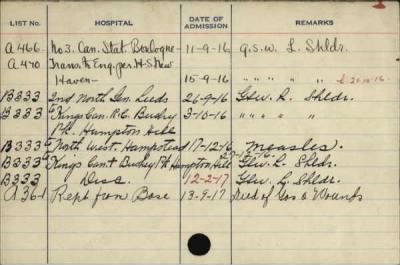 LIST No. HOSPITAL DATE OF ADMISSION REMARKS
A 466. No 3. Can. Stat Boulogne 11-9-16 G.S.W. L. Shldr.
A 470 Trans. to Eng. per H.S. New
Haven 15-9-16 " " " " 2.10.16
B333 2nd North. Gen. Leeds 26-9-16 GSW. R. Shldr.
B333 Kings Can. R.C. Bushy 3-10-16 " " "
Pk. Hampton Hill
B333 North West. Hampstead 17-12-16 Measles.
B333 Kings Can. Bushy Pk Hampton Hill GSW. L. Shldr.
B333 Disc. 12-2-17 GSW. L. Shldr.
A 36-1 Rept from Base 13-9-17 Died of Gas & Wounds